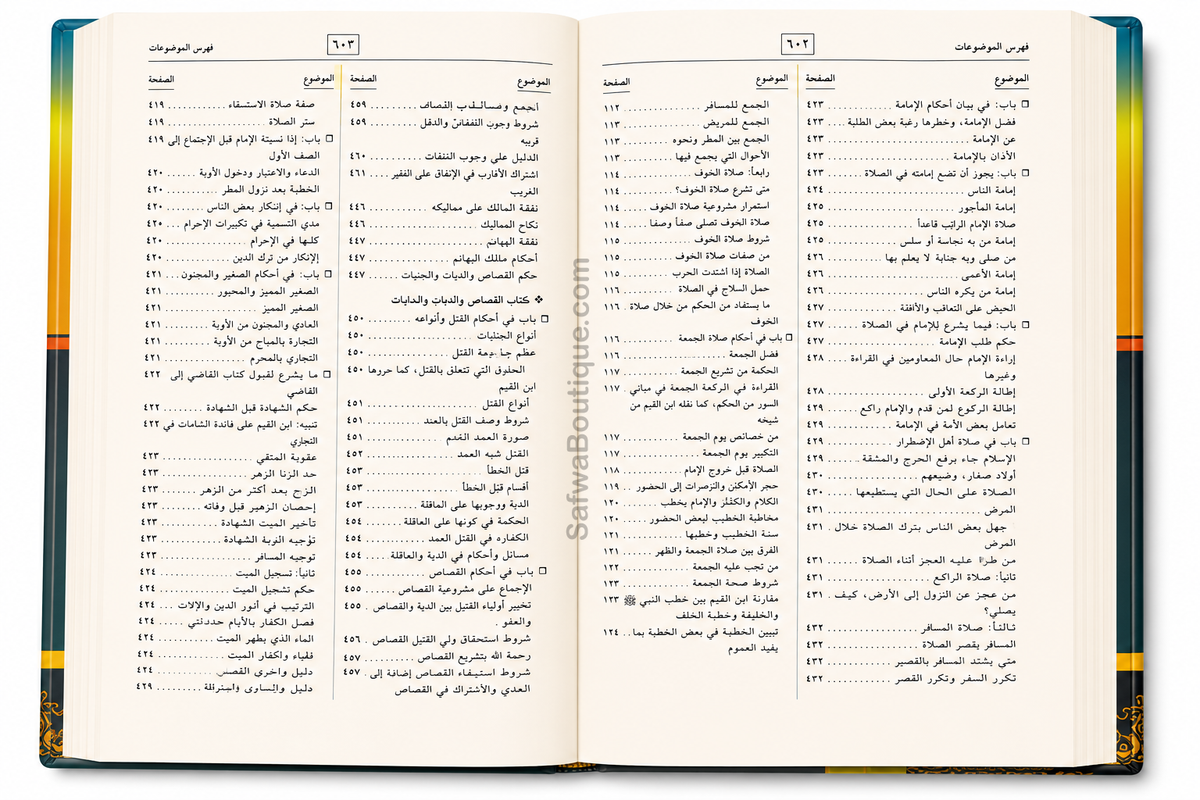 فهرس الموضوعات
٦٠٢
الموضوع الصفحة
❏ باب: في بيان أحكام الإمامة ............ ٤٢٣
فضل الإمامة، وخطرها رغبة بعض الطلبة .... ٤٢٣
عن الإمامة ............ ٤٢٣
الأذان بالإمامة ............ ٤٢٣
❏ باب: يجوز أن تضع إمامته في الصلاة ..... ٤٢٣
إمامة الناس ............ ٤٢٤
إمامة المأجور ............ ٤٢٥
صلاة الإمام الراتب قاعداً ............ ٤٢٥
إمامة من به نجاسة أو سلس ............ ٤٢٥
من صلى وبه جنابة لا يعلم بها ............ ٤٢٦
إمامة الأعمى ............ ٤٢٦
إمامة من يكره الناس ............ ٤٢٦
الحيض على التعاقب والأفقنة ............ ٤٢٧
❏ باب: فيما يشرع للإمام في الصلاة ....... ٤٢٧
حكم طلب الإمامة ............ ٤٢٧
إراءة الإمام حال المعاومين في القراءة .... ٤٢٨
وغيرها
إطالة الركعة الأولى ............ ٤٢٨
إطالة الركوع لمن قدم والإمام راكع ...... ٤٢٩
تعامل بعض الأمة في الإمامة ............ ٤٢٩
❏ باب في صلاة أهل الإضطرار ............ ٤٢٩
الإسلام جاء برفع الحرج والمشقة ....... ٤٢٩
أولاد صفار، وضيعهم ............ ٤٣٠
الصلاة على الحال التي يستطيعها ...... ٤٣٠
المرض ............ ٤٣١
جهل بعض الناس بترك الصلاة خلال . ٤٣١
المرض
من طرا عليه العجز أثناء الصلاة ....... ٤٣١
ثانياً: صلاة الراكع ............ ٤٣١
من عجز عن النزول إلى الأرض، كيف . ٤٣١
يصلي؟
ثالثاً: صلاة المسافر ............ ٤٣٢
المسافر يقصر الصلاة ............ ٤٣٢
متى يشتد المسافر بالقصير ............ ٤٣٢
تكرر السفر وتكرر القصر ............ ٤٣٢
الموضوع الصفحة
الجمع للمسافر ............ ١١٢
الجمع للمريض ............ ١١٣
الجمع بين المطر ونحوه ............ ١١٣
الأحوال التي يجمع فيها ............ ١١٣
رابعاً: صلاة الخوف ............ ١١٤
متى تشرع صلاة الخوف؟ ............ ١١٤
استمرار مشروعية صلاة الخوف ..... ١١٤
صلاة الخوف تصلى صفاً وصفا ..... ١١٤
شروط صلاة الخوف ............ ١١٥
من صفات صلاة الخوف ............ ١١٥
الصلاة إذا أشتدت الحرب ............ ١١٥
حمل السلاح في الصلاة ............ ١١٦
ما يستفاد من الحكم من خلال صلاة . ١١٦
الخوف
❏ باب في أحكام صلاة الجمعة ............ ١١٦
فضل الجمعة ............ ١١٦
الحكمة من تشريع الجمعة ............ ١١٧
القراءة في الركعة الجمعة في مباني .. ١١٧
السور من الحكم، كما نقله ابن القيم من
شيخه
من خصائص يوم الجمعة ............ ١١٧
التكبير يوم الجمعة ............ ١١٧
الصلاة قبل خروج الإمام ............ ١١٨
حجر الأمكنن والترصرات إلى الحضور .. ١١٩
الكلام والكقثلز والإمام يخطب ........ ١٢٠
مخاطبة الخطيب ليعض الحضور ........ ١٢٠
سنة الخطيب وخطبها ............ ١٢١
الفرق بين صلاة الجمعة والظهر ........ ١٢١
من تجب عليه الجمعة ............ ١٢٢
شروط صحة الجمعة ............ ١٢٣
مقارنة ابن القيم بين خطب النبي ﷺ ١٢٣
والخليفة وخطبة الخلف
تبيين الخطبة في بعض الخطبة بما .. ١٢٤
يفيد العموم
٦٠٣
فهرس الموضوعات
الموضوع الصفحة
٤٥٩
شروط وجوب ............ ٤٥٩
قريبه
الدليل على وجوب النفقات ............ ٤٦٠
اشتراك الأقارب في الإنفاق على الفقير .... ٤٦١
الغريب
نفقة المالك على مماليكه ............ ٤٤٦
نكاح المماليك ............ ٤٤٦
نفقة البهائم ............ ٤٤٧
أحكام مللك البهانم ............ ٤٤٧
حكم القصاص والديات والجنيات ....... ٤٤٧
❖ كتاب القصاص والدبات والدايات
❏ باب في أحكام القتل وأنواعه ............ ٤٥٠
أنواع الجنليات ............ ٤٥٠
عظم القتل ............ ٤٥٠
الحقوق التي تتعلق بالقتل، كما حروها ٤٥٠
ابن القيم
أنواع القتل ............ ٤٥١
شروط وصف القتل بالعند ............ ٤٥١
صورة العمد ............ ٤٥١
القتل شبه العمد ............ ٤٥٢
قتل الخطأ ............ ٤٥٣
أقسام قتل الخطأ ............ ٤٥٣
الدية ووجوبها على الماقلة ............ ٤٥٣
الحكمة في كونها على العاقلة ....... ٤٥٤
الكفاره في القتل العمد ............ ٤٥٤
مسائل وأحكام في الدية والعاقلة.... ٤٥٤
❏ باب في أحكام القصاص ............ ٤٥٥
الإجماع على مشروعية القصاص .... ٤٥٥
تخيير أولياء القتيل بين الدية والقصاص . ٤٥٥
والعفو .
شروط استحقاق ولي القتيل القصاص . ٤٥٦
رحمة الله بتشريع القصاص ............ ٤٥٧
شروط استيفاء القصاص إضافة إلى . ٤٥٧
العدي والأشتراك في القصاص
الموضوع الصفحة
صفة صلاة الاستسقاء ............ ٤١٩
ستر الصلاة ............ ٤١٩
❏ باب: إذا نسيتة الإمام قبل الإجتماع إلى ٤١٩
الصف الأول
الدعاء والاعتبار ودخول الأوبة ...... ٤٢٠
الخطبة بعد نزول المطر ............ ٤٢٠
❏ باب: في إنتكار بعض الناس ........ ٤٢٠
مدي التسمية في تكبيرات الإحرام ... ٤٢٠
كلها في الإحرام ............ ٤٢٠
الإنكار من ترك الدين ............ ٤٢٠
❏ باب: في أحكام الصغير والمجنون .... ٤٢١
الصغير المميز والمحبور ............ ٤٢١
الصغير المميز ............ ٤٢١
العادي والمجنون من الأوبة ........ ٤٢١
التجارة بالمباح من الأوبة ........ ٤٢١
التجاري بالمحرم ............ ٤٢١
❏ ما يشرع لقبول كتاب القاضي إلى ٤٢٢
القاضي
حكم الشهادة قبل الشهادة ........ ٤٢٢
تنبيه: ابن القيم على فائدة الشامات في ٤٢٢
التجاري
عقوبة المتقي ............ ٤٢٣
حد الزنا الزهر ............ ٤٢٣
الزج بعد أكثر من الزهر ........ ٤٢٣
إحصان الزهير قبل وفاته ........ ٤٢٣
تأخير الميت الشهادة ............ ٤٢٣
تؤجيه النربة الشهادة ............ ٤٢٣
توجيه المسافر ............ ٤٢٣
ثانياً: تسجيل الميت ............ ٤٢٤
حكم تشجيل الميت ............ ٤٢٤
الترتيب في أنور الدين والإلات .... ٤٢٤
فصل الكفار بالأيام ..... ٤٢٤
الماء الذي يطهر الميت ............ ٤٢٤
فقياء واكفار الميت ............ ٤٢٤
دليل واخرى القصص ............ ٤٢٤
دليل ............ ٤٢٩
SafwaBoutique.com